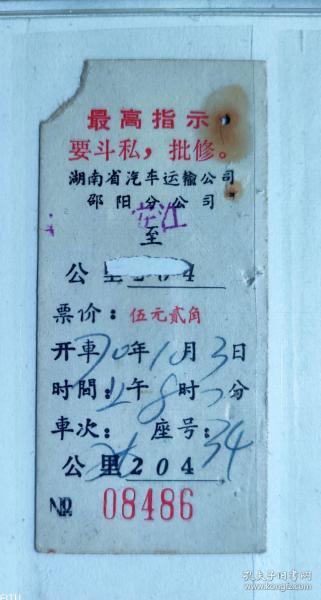 最高指示
要斗私，批修。
湖南省汽车运输公司
邵阳分公司
芷江
至
公里
票价：伍元贰角
开車70年10月3日
时間：上午8时 分
车次： 座号：34
公里204
№ 08486
孔夫子旧书网